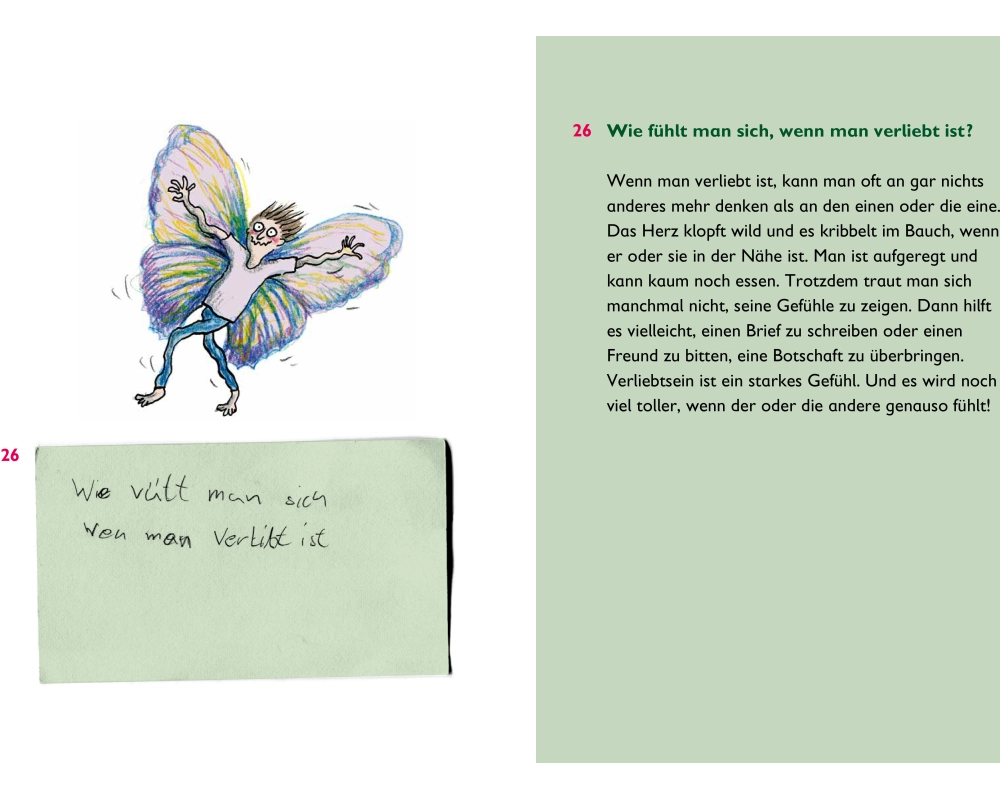 26
Wie vült man sich
wen man verlibt ist
26 Wie fühlt man sich, wenn man verliebt ist?
Wenn man verliebt ist, kann man oft an gar nichts
anderes mehr denken als an den einen oder die eine.
Das Herz klopft wild und es kribbelt im Bauch, wenn
er oder sie in der Nähe ist. Man ist aufgeregt und
kann kaum noch essen. Trotzdem traut man sich
manchmal nicht, seine Gefühle zu zeigen. Dann hilft
es vielleicht, einen Brief zu schreiben oder einen
Freund zu bitten, eine Botschaft zu überbringen.
Verliebtsein ist ein starkes Gefühl. Und es wird noch
viel toller, wenn der oder die andere genauso fühlt!